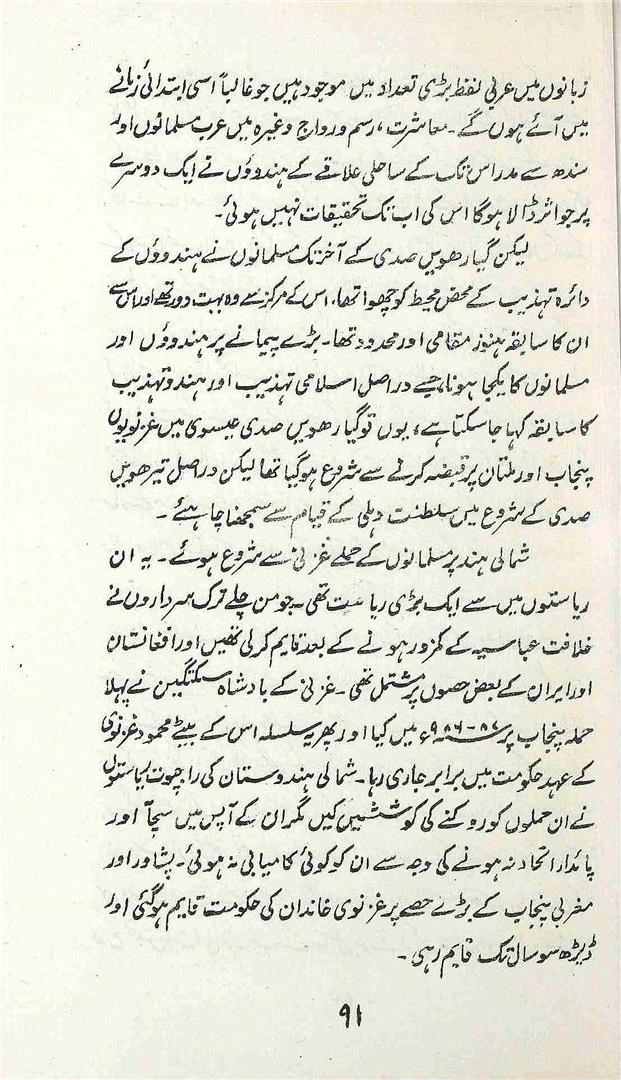 زبانوں میں عربی لفظ بڑی تعداد میں موجود ہیں جو غالباً اسی ابتدائی زمانے
میں آئے ہوں گے۔ معاشرت، رسم و رواج وغیرہ میں عرب مسلمانوں اور
سندھ سے مدراس تک کے ساحلی علاقے کے ہندوؤں نے ایک دوسرے
پر جو اثر ڈالا ہوگا اس کی اب تک تحقیقات نہیں ہوئی۔
لیکن گیارھویں صدی کے آخر تک مسلمانوں نے ہندوؤں کے
دائرہ تہذیب کے محض محیط کو چھوا تھا، اس کے مرکز سے وہ بہت دور تھے اور اس سے
ان کا سابقہ ہنوز مقامی اور محدود تھا۔ بڑے پیمانے پر ہندوؤں اور
مسلمانوں کا یکجا ہونا، جسے دراصل اسلامی تہذیب اور ہندو تہذیب
کا سابقہ کہا جا سکتا ہے، یوں تو گیارھویں صدی عیسوی میں غزنویوں
پنجاب اور ملتان پر قبضہ کرنے سے شروع ہوگیا تھا لیکن دراصل تیرھویں
صدی کے شروع میں سلطنت دہلی کے قیام سے سمجھنا چاہئے۔
شمالی ہند پر مسلمانوں کے حملے غزنی سے شروع ہوئے۔ یہ ان
ریاستوں میں سے ایک بڑی ریاست تھی۔ جو من چلے ترک سرداروں نے
خلافت عباسیہ کے کمزور ہونے کے بعد قایم کر لی تھیں اور افغانستان
اور ایران کے بعض حصوں پر مشتمل تھی۔ غزنی کے بادشاہ سبکتگین نے پہلا
حملہ پنجاب پر ۸۷-۹۸۶ء میں کیا اور پھر یہ سلسلہ اس کے بیٹے محمود غزنوی
کے عہد حکومت میں برابر جاری رہا۔ شمالی ہندوستان کی راجپوت ریاستوں
نے ان حملوں کو روکنے کی کوششیں کیں مگر ان کے آپس میں سچا اور
پائدار اتحاد نہ ہونے کی وجہ سے ان کو کوئی کامیابی نہ ہوئی۔ پشاور اور
مغربی پنجاب کے بڑے حصے پر غزنوی خاندان کی حکومت قایم ہوگئی اور
ڈیڑھ سو سال تک قایم رہی۔
۹۱